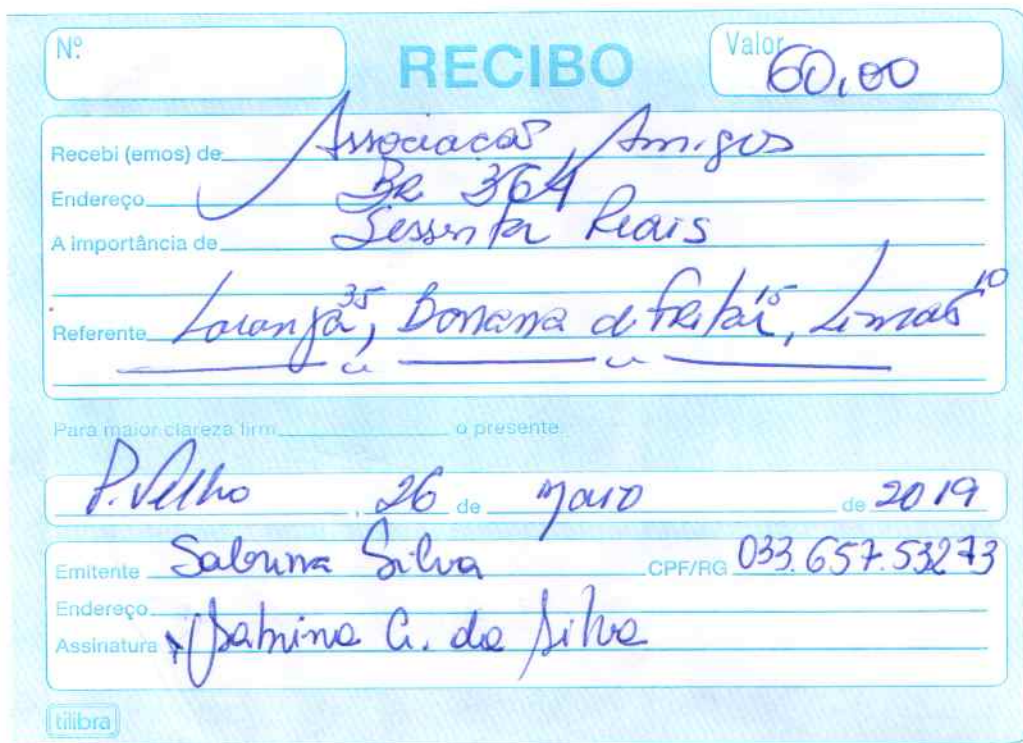 Nº RECIBO Valor 60,00
Recebi (emos) de Associacao Amigos
Endereço BR 364
A importância de Sessenta Reais
Referente Laranja 35, Banana d fritar 15, Limao 10
Para maior clareza firm o presente.
P. Velho, 26 de maio de 2019
Emitente Sabrina Silva CPF/RG 033.657.53273
Endereço
Assinatura Sabrina G. da Silva
tilibra